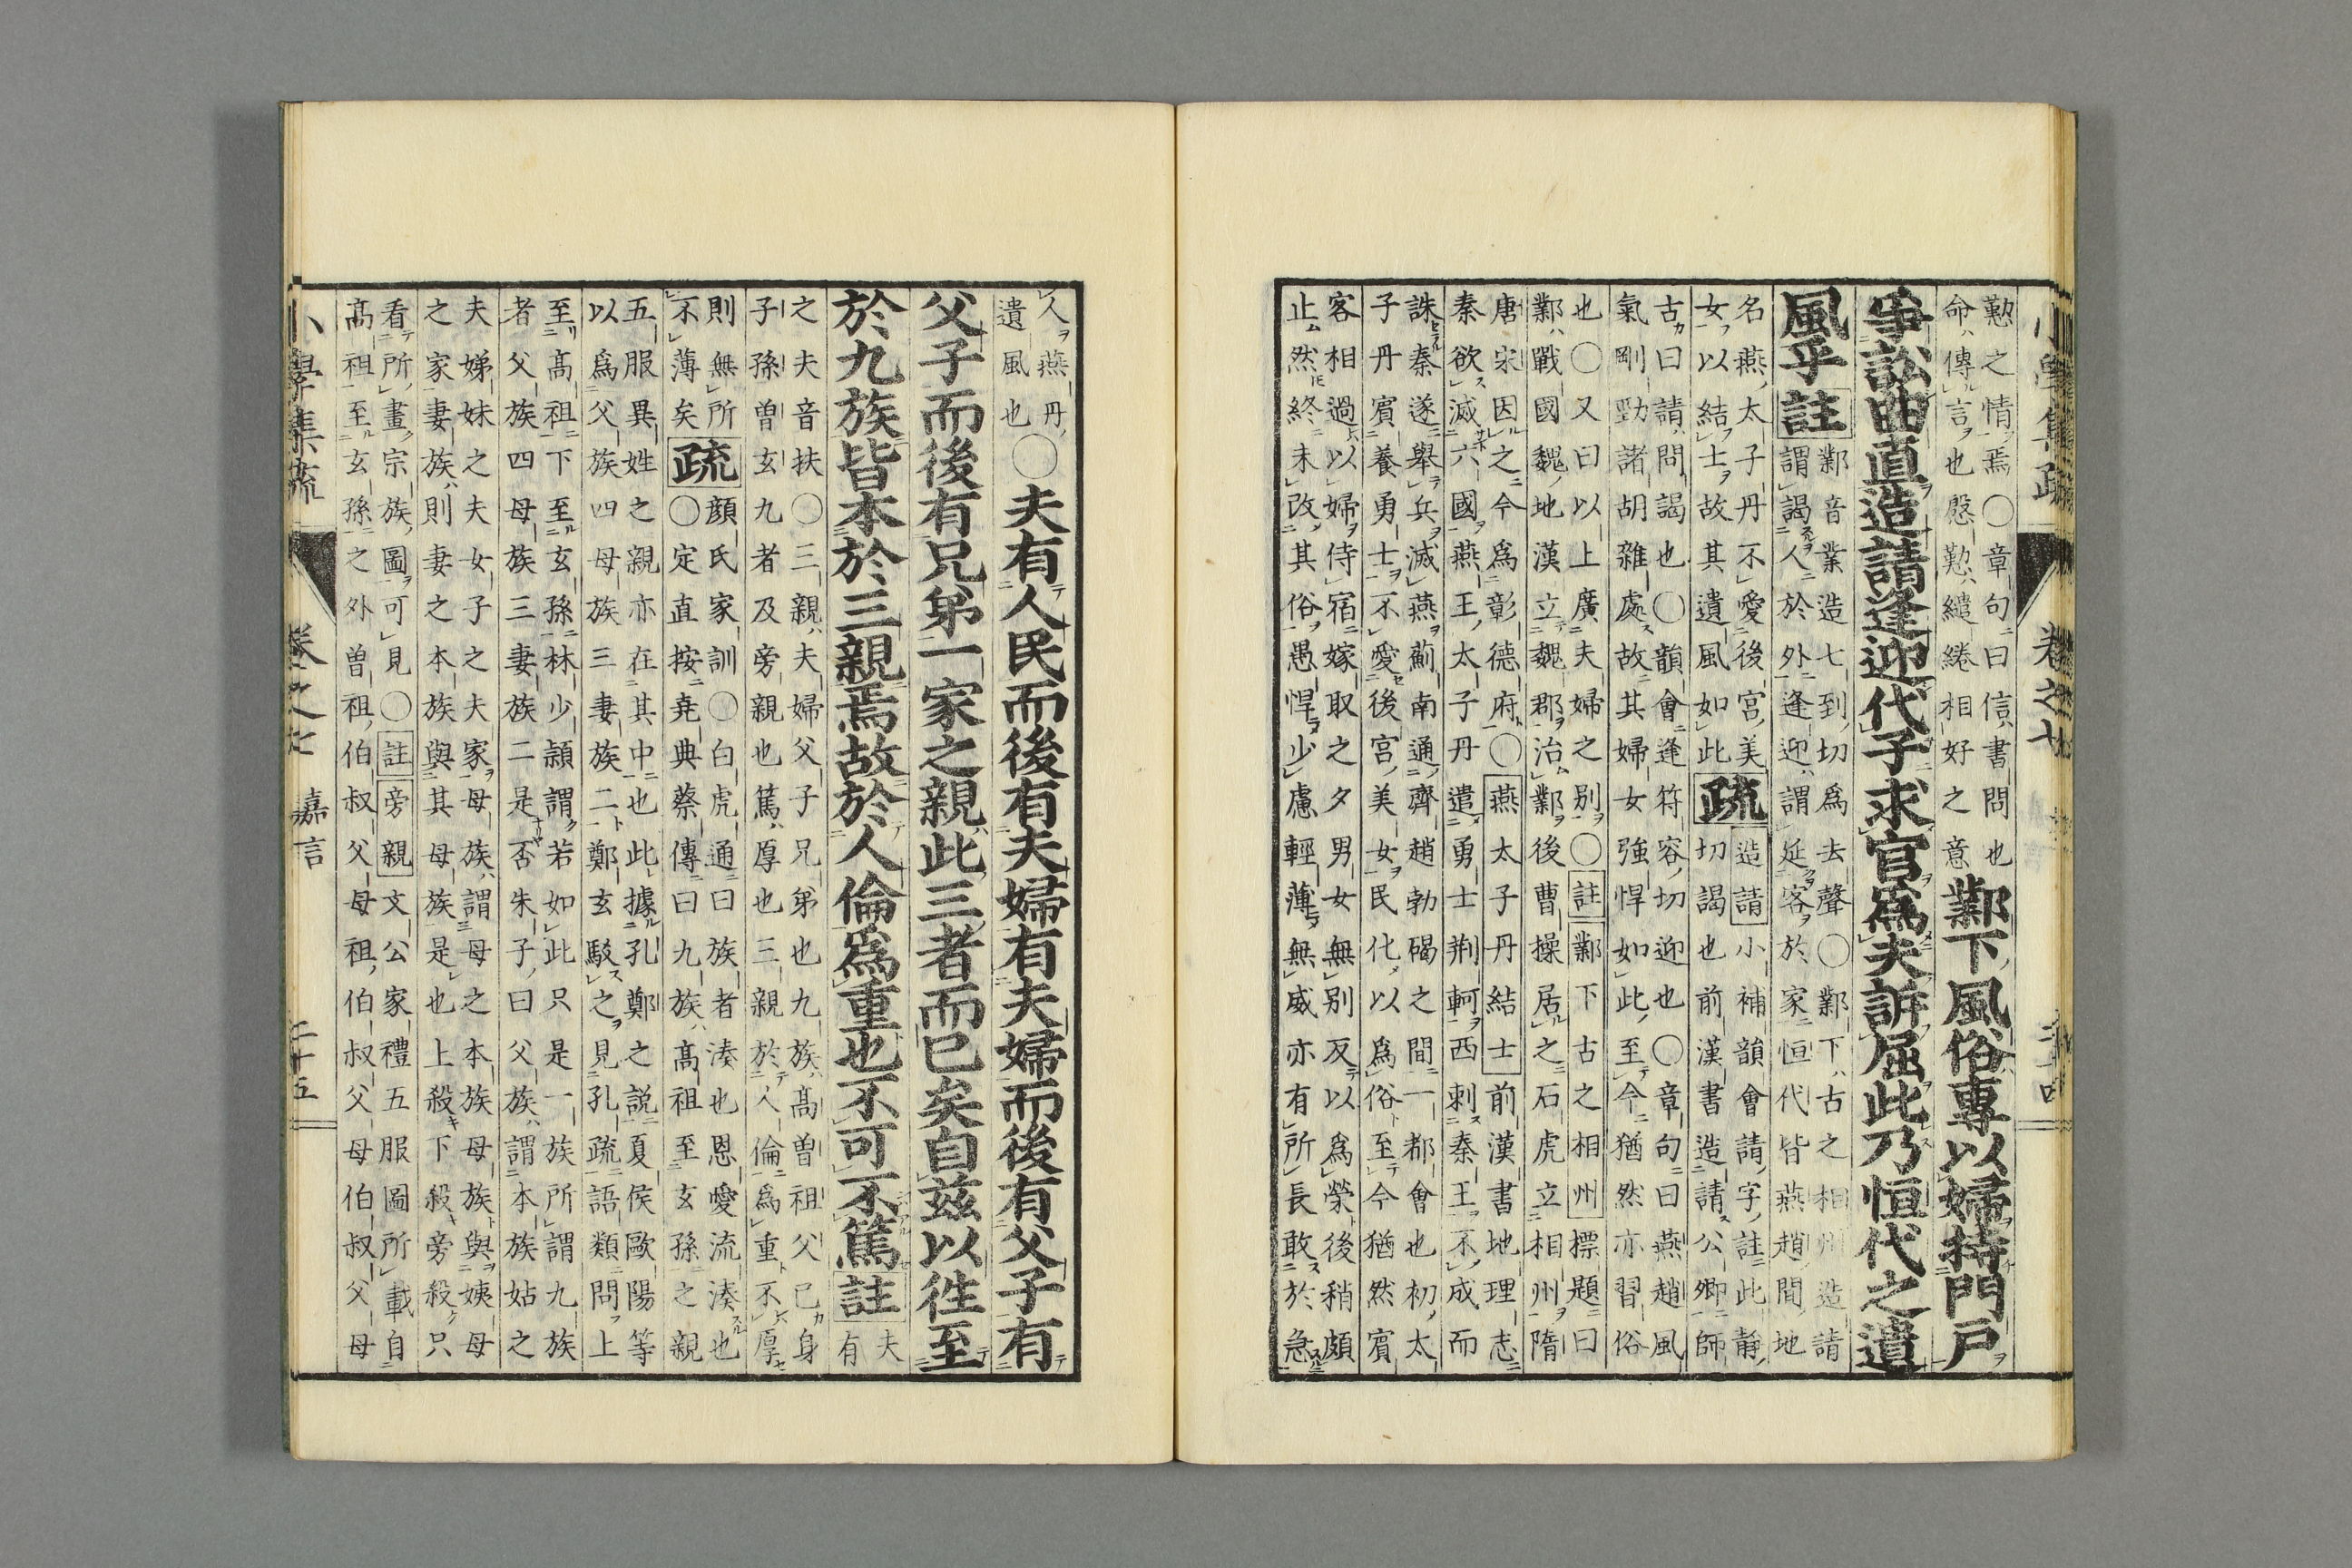 小學集疏 卷之七
懃之情焉〇章句曰信書問也
命傳言也慇懃繾綣相好之意
鄴下風俗專以婦持門戸
爭訟曲直造請逢迎代子求官爲夫訴屈此乃恒代之遺
風乎註
鄴音業造七到切爲去聲〇鄴下古之相州造請
謂謁人於外逢迎謂延客於家恒代皆燕趙間地
名燕太子丹不愛後宮美
女以結士故其遺風如此
疏
造請小補韻會請字註此靜
切謁也前漢書造請公卿師
古曰請問謁也〇韻會逢符容切迎也〇章句曰燕趙風
氣剛勁諸胡雜處故其婦女強悍如此至今猶然亦習俗
也〇又曰以上廣夫婦之別〇註鄴下古之相州標題曰
鄴戰國魏地漢立魏郡治鄴後曹操居之石虎立相州隋
唐宋因之今爲彰德府〇燕太子丹結士前漢書地理志
秦欲滅六國燕王太子丹遣勇士荆軻西刺秦王不成而
誅秦遂舉兵滅燕薊南通齊趙勃碣之間一都會也初太
子丹賓養勇士不愛後宮美女民化以爲俗至今猶然賓
客相過以婦侍宿嫁取之夕男女無別反以爲榮後稍頗
止然終未改其俗愚悍少慮輕薄無威亦有所長敢於急
人燕丹
遺風也
〇夫有人民而後有夫婦有夫婦而後有父子有
父子而後有兄弟一家之親此三者而已矣自茲以往至
於九族皆本於三親焉故於人倫爲重也不可不篤註
夫有
之夫音扶〇三親夫婦父子兄弟也九族高曾祖父己身
子孫曾玄九者及旁親也篤厚也三親於人倫爲重不厚
則無所
不薄矣
疏
顔氏家訓〇白虎通曰族者湊也恩愛流湊也
〇定直按堯典蔡傳曰九族高祖至玄孫之親
五服異姓之親亦在其中也此據孔鄭之説夏侯歐陽等
以爲父族四母族三妻族二鄭玄駁之見孔疏語類問上
至高祖下至玄孫林少頴謂若如此只是一族所謂九族
者父族四母族三妻族二是否朱子曰父族謂本族姑之
夫娣妹之夫女子之夫家母族謂母之本族母族與姨母
之家妻族則妻之本族與其母族是也上殺下殺旁殺只
看所畫宗族圖可見〇註旁親文公家禮五服圖所載自
高祖至玄孫之外曾祖伯叔父母祖伯叔父母伯叔父母
小學集疏 卷之七 嘉言 二十五